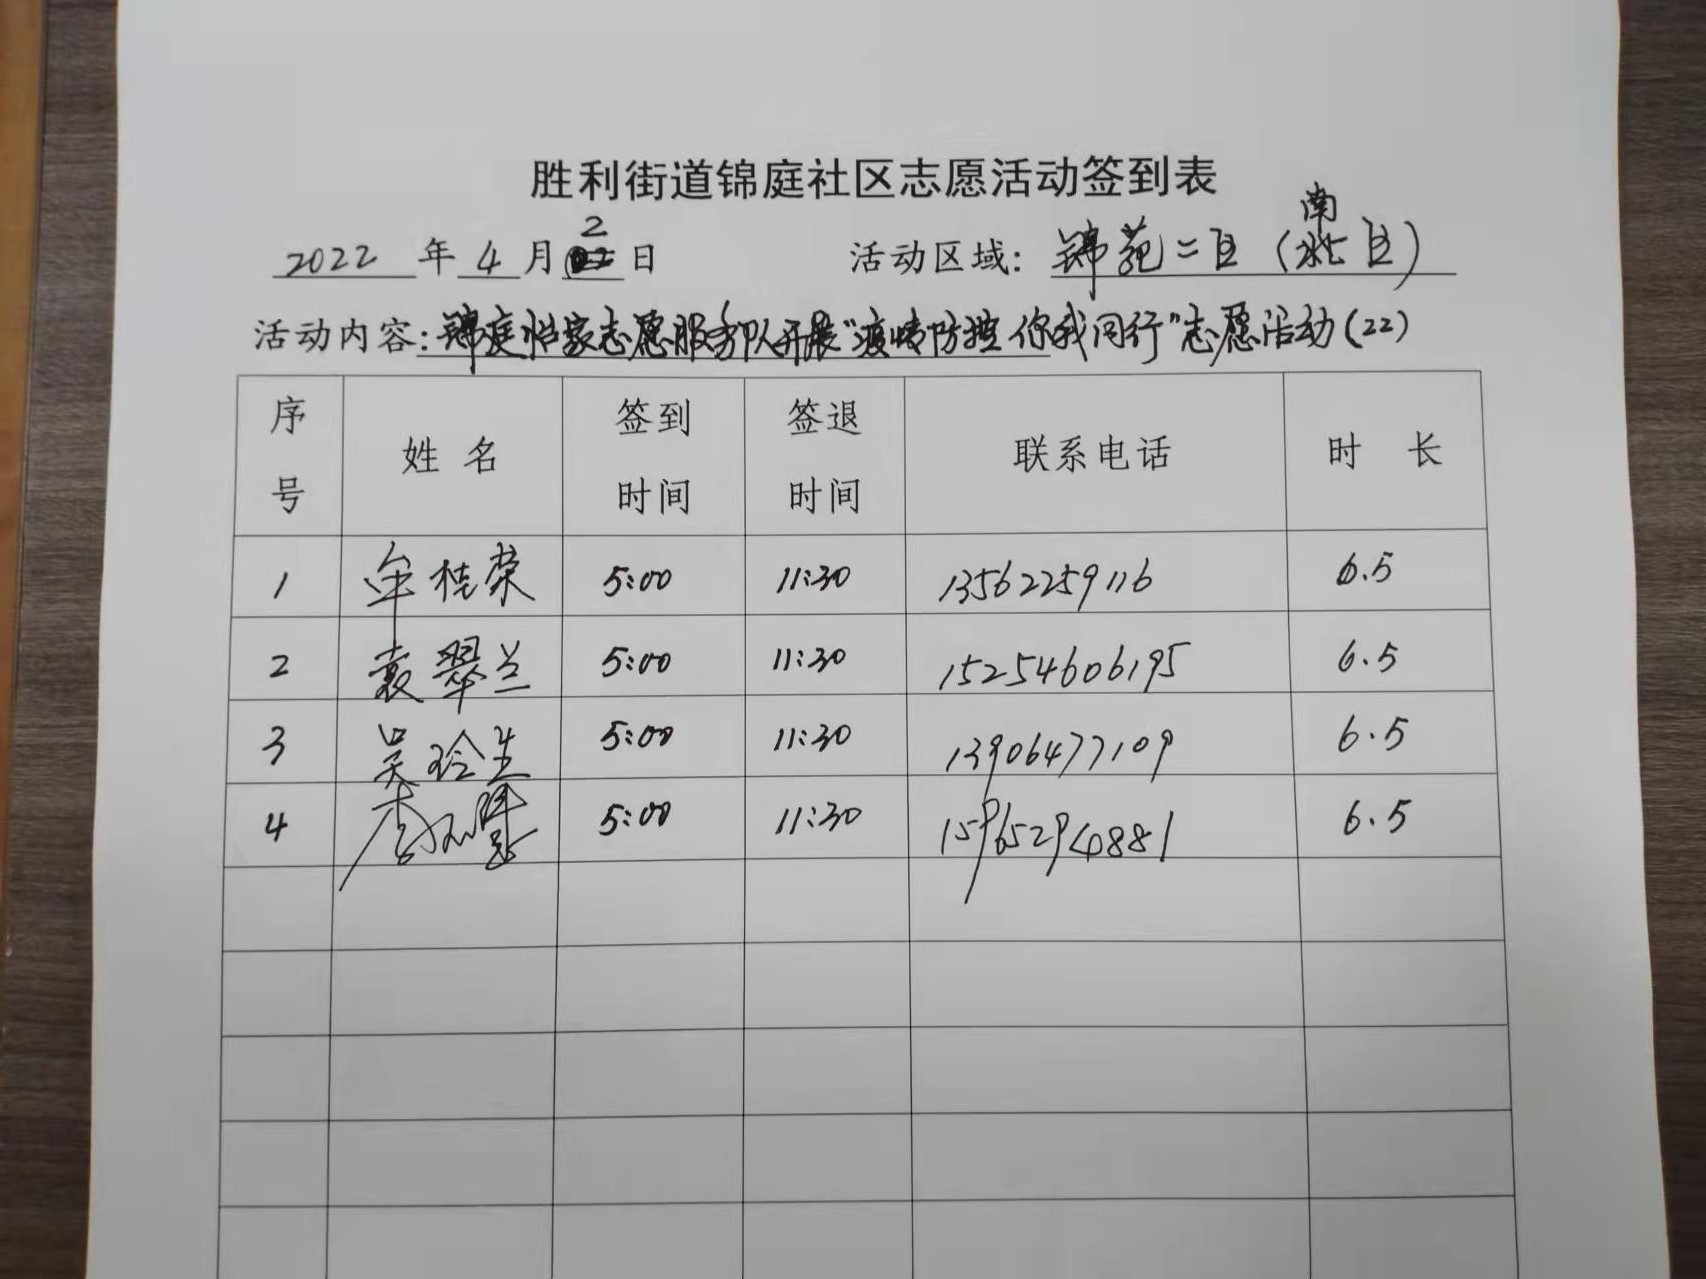 胜利街道锦庭社区志愿活动签到表
2022 年 4 月 2 日 活动区域: 锦苑二区 (南区)
活动内容: 锦庭怡家志愿服务队开展"疫情防控 你我同行"志愿活动 (22)
序号 姓名 签到时间 签退时间 联系电话 时长
1 牟桂荣 5:00 11:30 13562259116 6.5
2 袁翠兰 5:00 11:30 15254606195 6.5
3 吴玲生 5:00 11:30 13906477109 6.5
4 李 5:00 11:30 15965294881 6.5